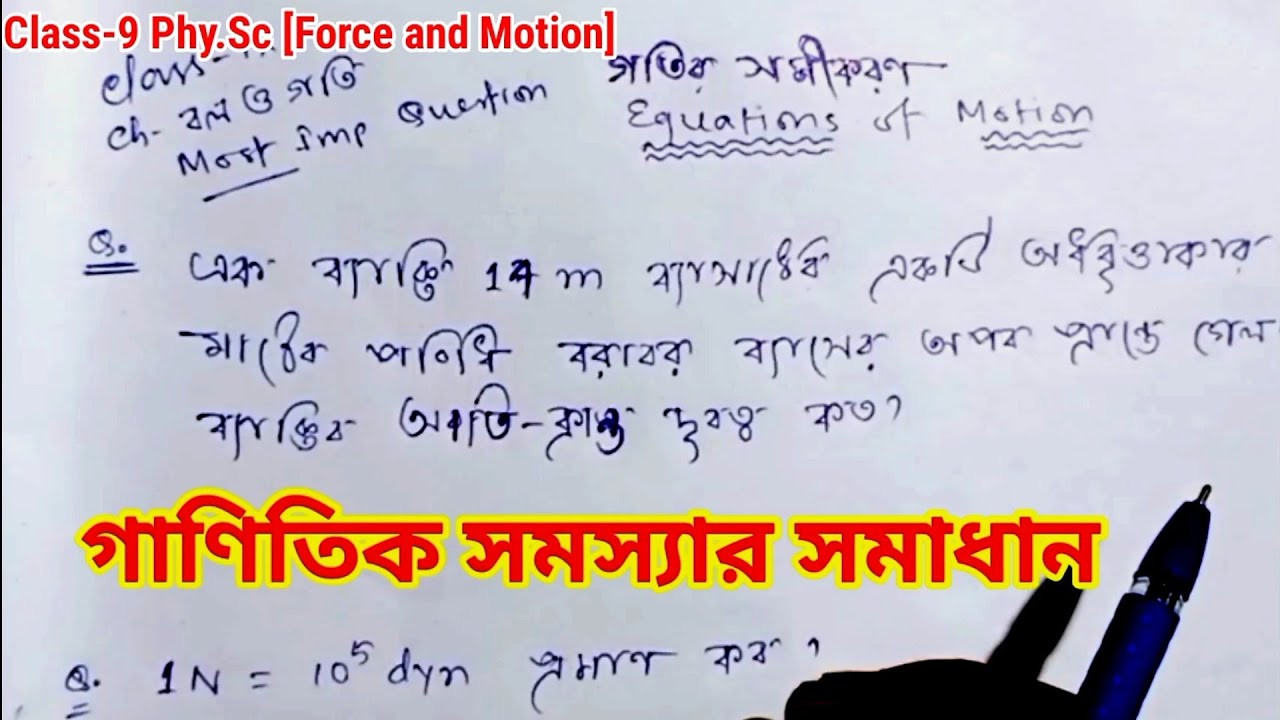 Class-9 Phy.Sc [Force and Motion]
class-
ch- বল ও গতি
Most Imp Question
গতির সমীকরণ
Equations of Motion
Q. এক ব্যাক্তি 14 m ব্যাসার্ধের একটি অর্ধবৃত্তাকার
মাঠের পরিধি বরাবর ব্যাসের অপর প্রান্তে গেল
ব্যাক্তির অতি-ক্রান্ত দূরত্ব কত?
গাণিতিক সমস্যার সমাধান
Q. 1N = 10⁵ dyn প্রমাণ কর ?